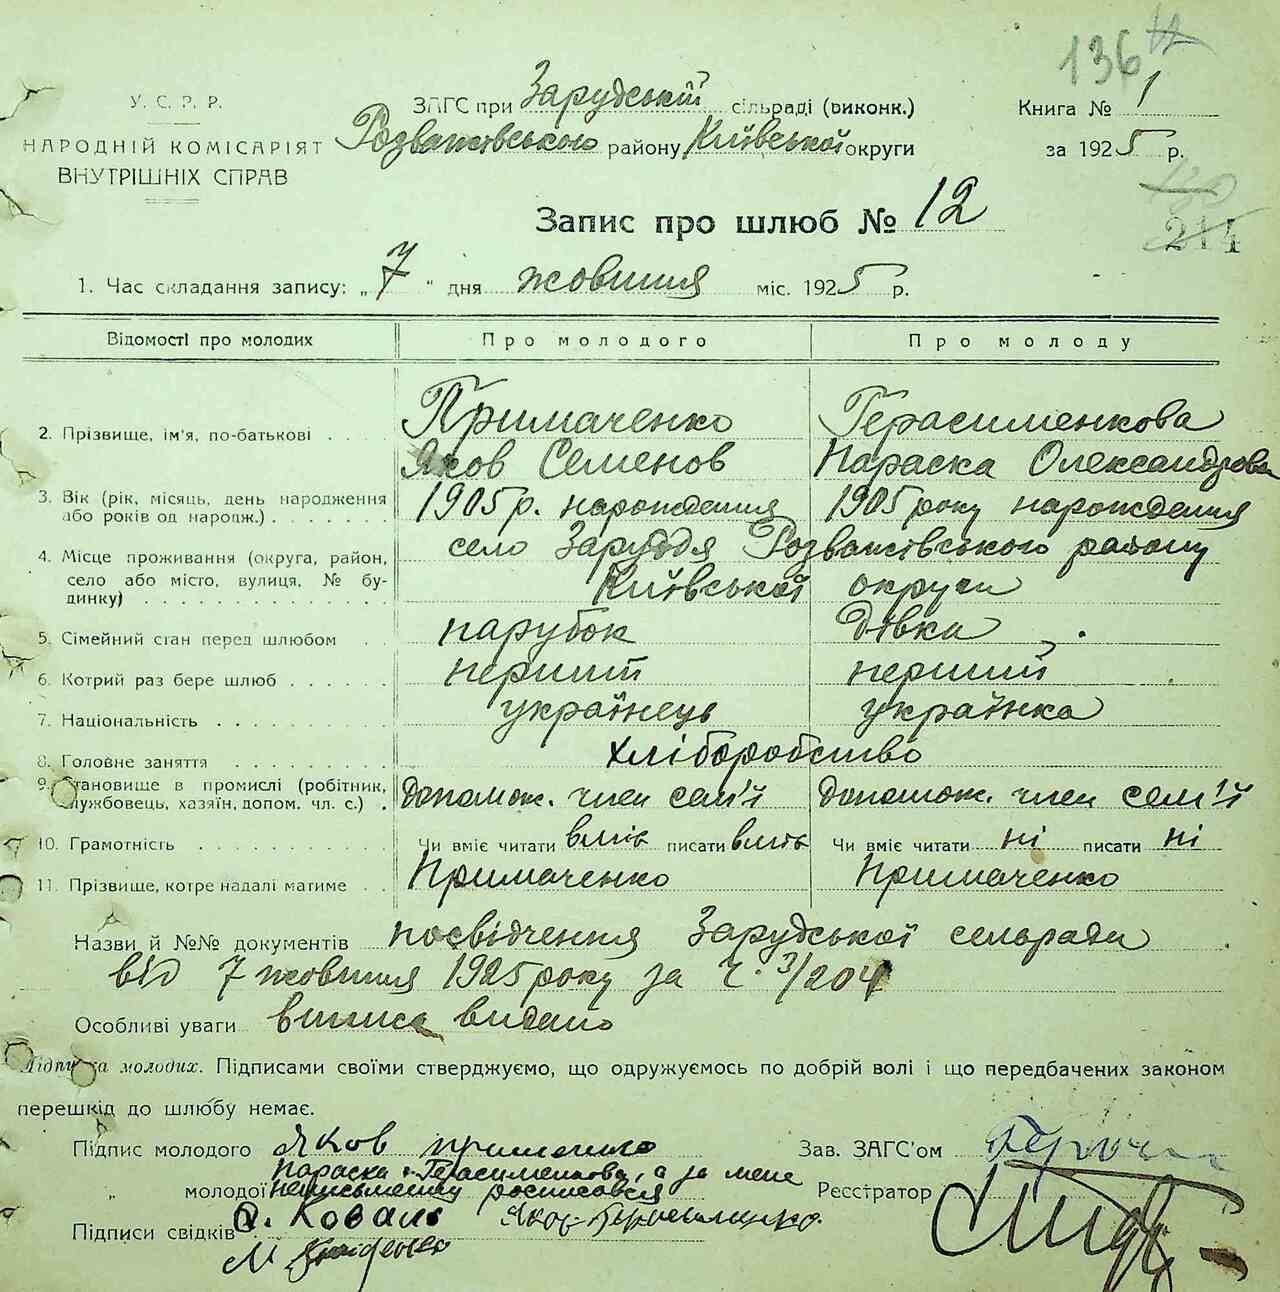 136
У. С. Р. Р.
НАРОДНІЙ КОМІСАРІЯТ
ВНУТРІШНІХ СПРАВ
ЗАГС при Зарудській сільраді (виконк.)
Розважівського району Київської округи
Книга № 1
за 1925 р.
214
Запис про шлюб № 12
1. Час складання запису: „7" дня жовтня міс. 1925 р.
Відомості про молодих Про молодого Про молоду
2. Прізвище, ім'я, по-батькові Примаченко Герасименкова
Яков Семенов Параска Олександрова
3. Вік (рік, місяць, день народження або років од народж.) 1905 р. народження 1905 року народження
4. Місце проживання (округа, район, село або місто, вулиця, № будинку) село Заруддя Розважівського району
Київської округи
5. Сімейний стан перед шлюбом парубок дівка
6. Котрий раз бере шлюб перший перший
7. Національність українець українка
8. Головне заняття хліборобство
9. Становище в промислі (робітник, службовець, хазяїн, допом. чл. с.) допомож. член сем'ї допомож. член сем'ї
10. Грамотність Чи вміє читати вміє писати вміє Чи вміє читати ні писати ні
11. Прізвище, котре надалі матиме Примаченко Примаченко
Назви й №№ документів посвідчення Зарудської сельради
від 7 жовтня 1925 року за ч. 3/204
Особливі уваги виписа видано
Підписка молодих. Підписами своїми стверджуємо, що одружуємось по добрій волі і що передбачених законом
перешкід до шлюбу немає.
Підпис молодого Яков
Зав. ЗАГС'ом
Параска Герасименкова, а за мене
„ молодої неписьменну росписався
Реєстратор
Підписи свідків Коваль Яков Герасименко